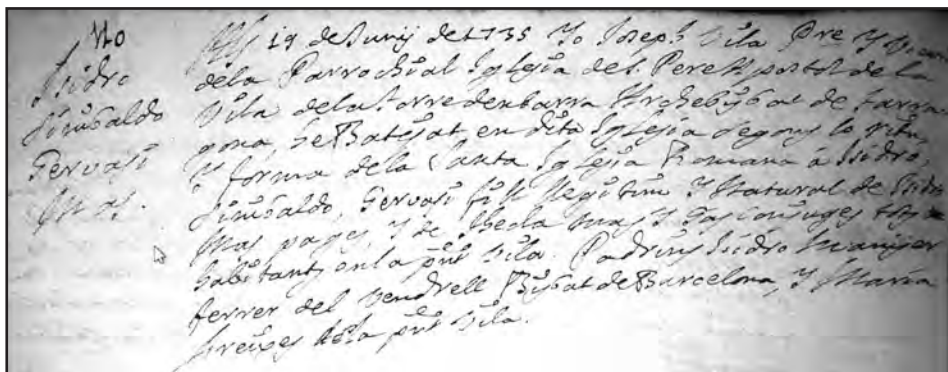 110
Isidro
Simbaldo
Gervasi
Mas.
Als 19 de Juny de 1735 Yo Joseph Vila Pre Y
dela Parrochial Iglesia de S. Pere Apostol de la
Vila dela torredenbarra Archebisbat de Tarra
gona, he Batejat en dita Iglesia segons lo ritu
Y forma dela Santa Iglesia Romana á Isidro,
Simbaldo, Gervasi fill llegitim Y Natural de Isidro
Mas pages, y de Thecla Mas Y conjuges tots
habitants en la pnt vila. Padrins Isidro
ferrer del Vendrell Bisbat de Barcelona, Y Maria
dela pnt vila.